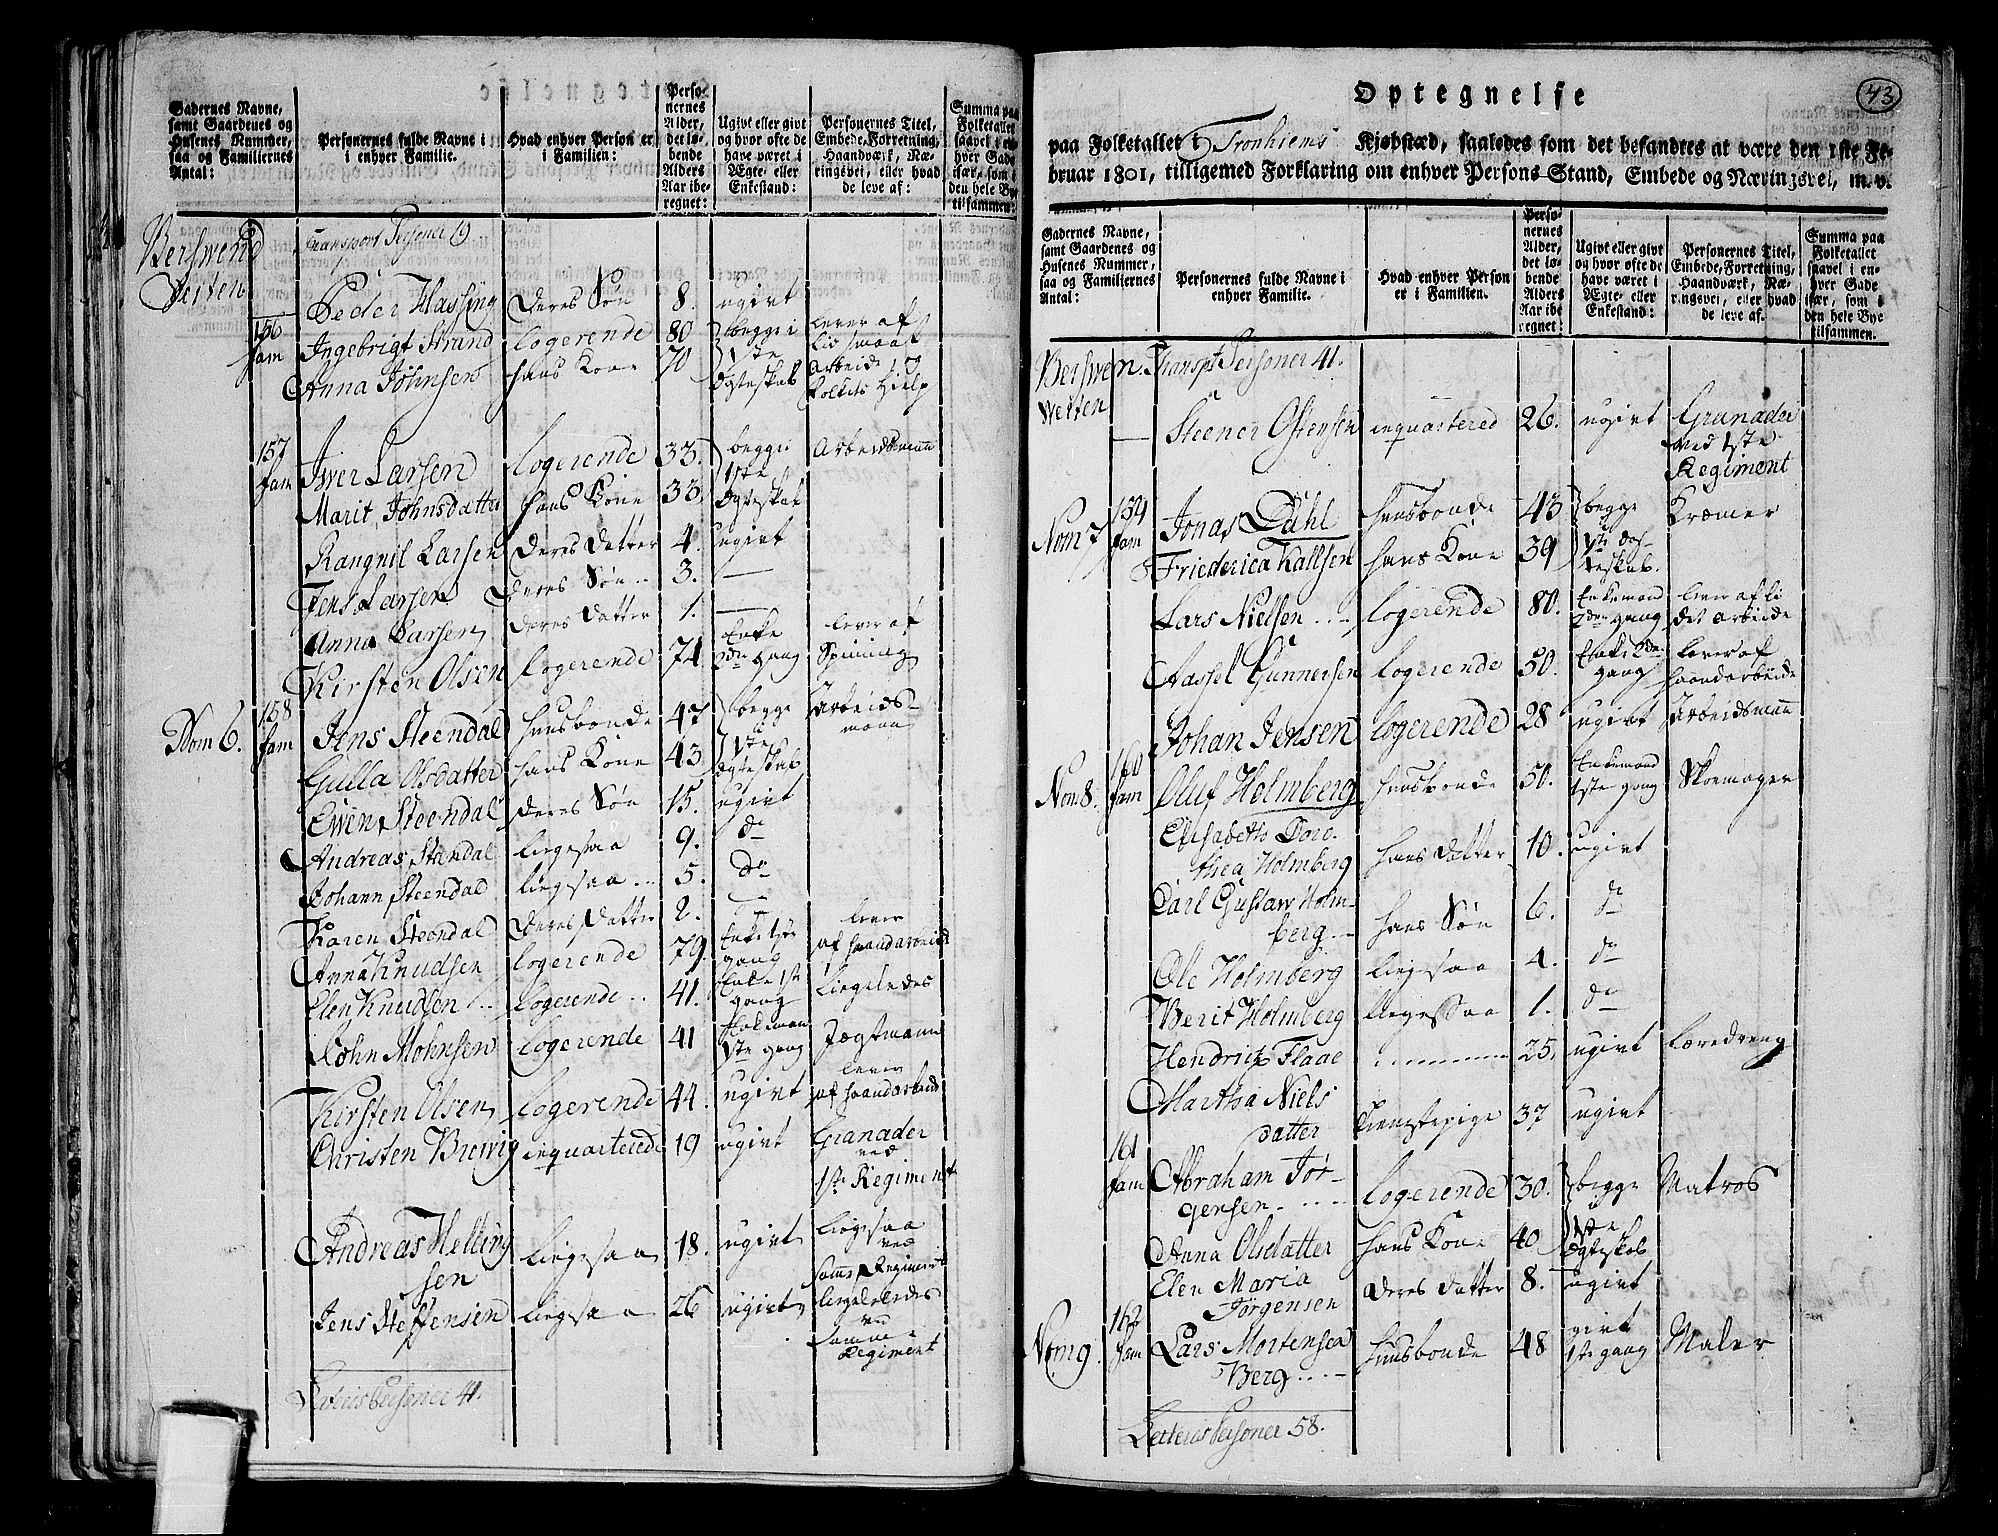 Gadernes Navne,
samt Gaardenes og
Husenes Nummer,
saa og Familiernes
Antal:
Personernes fulde Navne i
i enhver Familie.
Hvad enhver Person er
i Familien:
Perso-
nernes
Alder,
det lø-
bende
Alders
Aar ibe-
regnet:
Ugivt eller givt
og hvor ofte de
have været i
Ægte- eller
Enkestand:
Personernes Titel,
Embede, Forretning,
Haandværk, Næ-
ringsvei, eller hvad
de leve af:
Summa paa
Folketallet
saavel i en-
hver Gade
især, som i
den hele Bye
tilsammen:
Transport Personer 19
Peder Hassing deres Søn 8. ugivt
156 fam Ingebrigt Strand logerende 80 begge i lever af
Anna Johnsen hans Kone 70 1ste Ægteskab
157 fam Iwer Larsen logerende 33. begge i Arbeidsmann
Marit Johnsdatter hans Kone 33. 1ste Ægteskab
Rangnil Larsen deres datter 4. ugivt
Jens Larsen deres Søn .. 3. —
Anna Larsen deres datter 1. —
Kirsten Olsen logerende 74. Enke 2den gang lever af Spinning
Nom 6. 158 fam Jens Steendal huusbonde 47 begge i Arbeids-
mann
Gulla Olsdatter hans Kone 43 1ste Ægteskab
Ewen Steendal deres Søn 15. ugivt
Andreas Stendal liigesaa 9. do
Johann Steendal liigesaa .. 5. do
Karen Steendal deres datter 2. —
Anna Knudsen logerende 79. Enke 1ste gang lever af haandarbeide
Elen Knudsen .. logerende .. 41. Enke 1ste gang liigeledes
John Mohnsen logerende 41 Enkeman 1ste gang Jægtmann
Kirsten Olsen logerende 44. ugivt lever af haandarbeide
Christen Brewig inquarterede 19 ugivt Granader
ved
1ste Regiment
Andreas Helling
sen liigesaa 18. ugivt liigesaa
ved
samme Regiment
Jens Steffensen liigesaa 26 ugivt liigeledes
ved
samme
Regiment
Lateris Personer 41.
43
Optegnelse
paa Folketallet i Tronhiems Kjøbstæd, saaledes som det befandtes at være den 1ste Fe-
bruar 1801, tilligemed Forklaring om enhver Persons Stand, Embede og Næringsvei, m. v.
Gadernes Navne,
samt Gaardenes og
Husenes Nummer,
saa og Familiernes
Antal:
Personernes fulde Navne i
enhver Familie.
Hvad enhver Person
er i Familien.
Perso-
nernes
Alder,
det lø-
bende
Alders
Aar ibe
regnet:
Ugivt eller givt
og hvor ofte de
have været i
Ægte- eller
Enkestand:
Personernes Titel,
Embede, Forretning,
Haandværk, Næ-
ringsvei, eller hvad
de leve af.
Summa paa
Folketallet
saavel i en-
hver Gade
især, som i
den hele Bye
tilsammen.
Transpt Personer 41.
Steener Ostensen inquartered 26. ugivt Granader
ved 1ste
Regiment
Nom 7 159 fam Jonas Dahl huusbonde 43 begge i Kræmer
Friederica Kallsen hans Kone 39 1ste Æg-
teskab.
Lars Nielsen ... logerende 80. Enkemand 2den gang lever af li
det arbeide
Aassel Gunnersen logerende 50. Enke 2den gang lever af
haandarbeide
Johan Jensen logerende 28 ugivt Arbeidsmann
Nom 8. 160 fam Oluf Holmberg huusbonde 50. Enkemand 1ste gang Skoemager
Elisabeth Doro
thea Holmberg hans datter 10. ugivt
Carl Gustaw Holm-
berg .. hans Søn 6. do
Ole Holmberg liigesaa 4. do
Berit Holmberg liigesaa 1. do
Hendrich Flaae 25. ugivt læredreng
Martha Niels
datter tienestepige 37 ugivt
161 fam Abraham Jør-
gensen .... logerende 30. begge i Matros
Anna Olsdatter hans Kone 40 1ste Ægteskab
Elen Maria
Jørgensen deres datter 8. ugivt
Nom 9. 162 fam Lars Mortensen
Berg ... huusbonde 48 givt 1ste gang Maler
Latteris Personer 58.